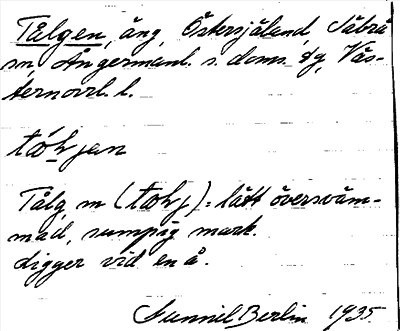 Tålgen, äng, Östersjäland, Säbrå
sn, Ångermanl. s. doms. dg, Väs-
ternorrl. l.
tɷ́lɟen
Tålg m (tɷlɟ) = lätt översväm-
mad, sumpig mark.
Ligger vid en å.
Gunnil Berlin 1935.